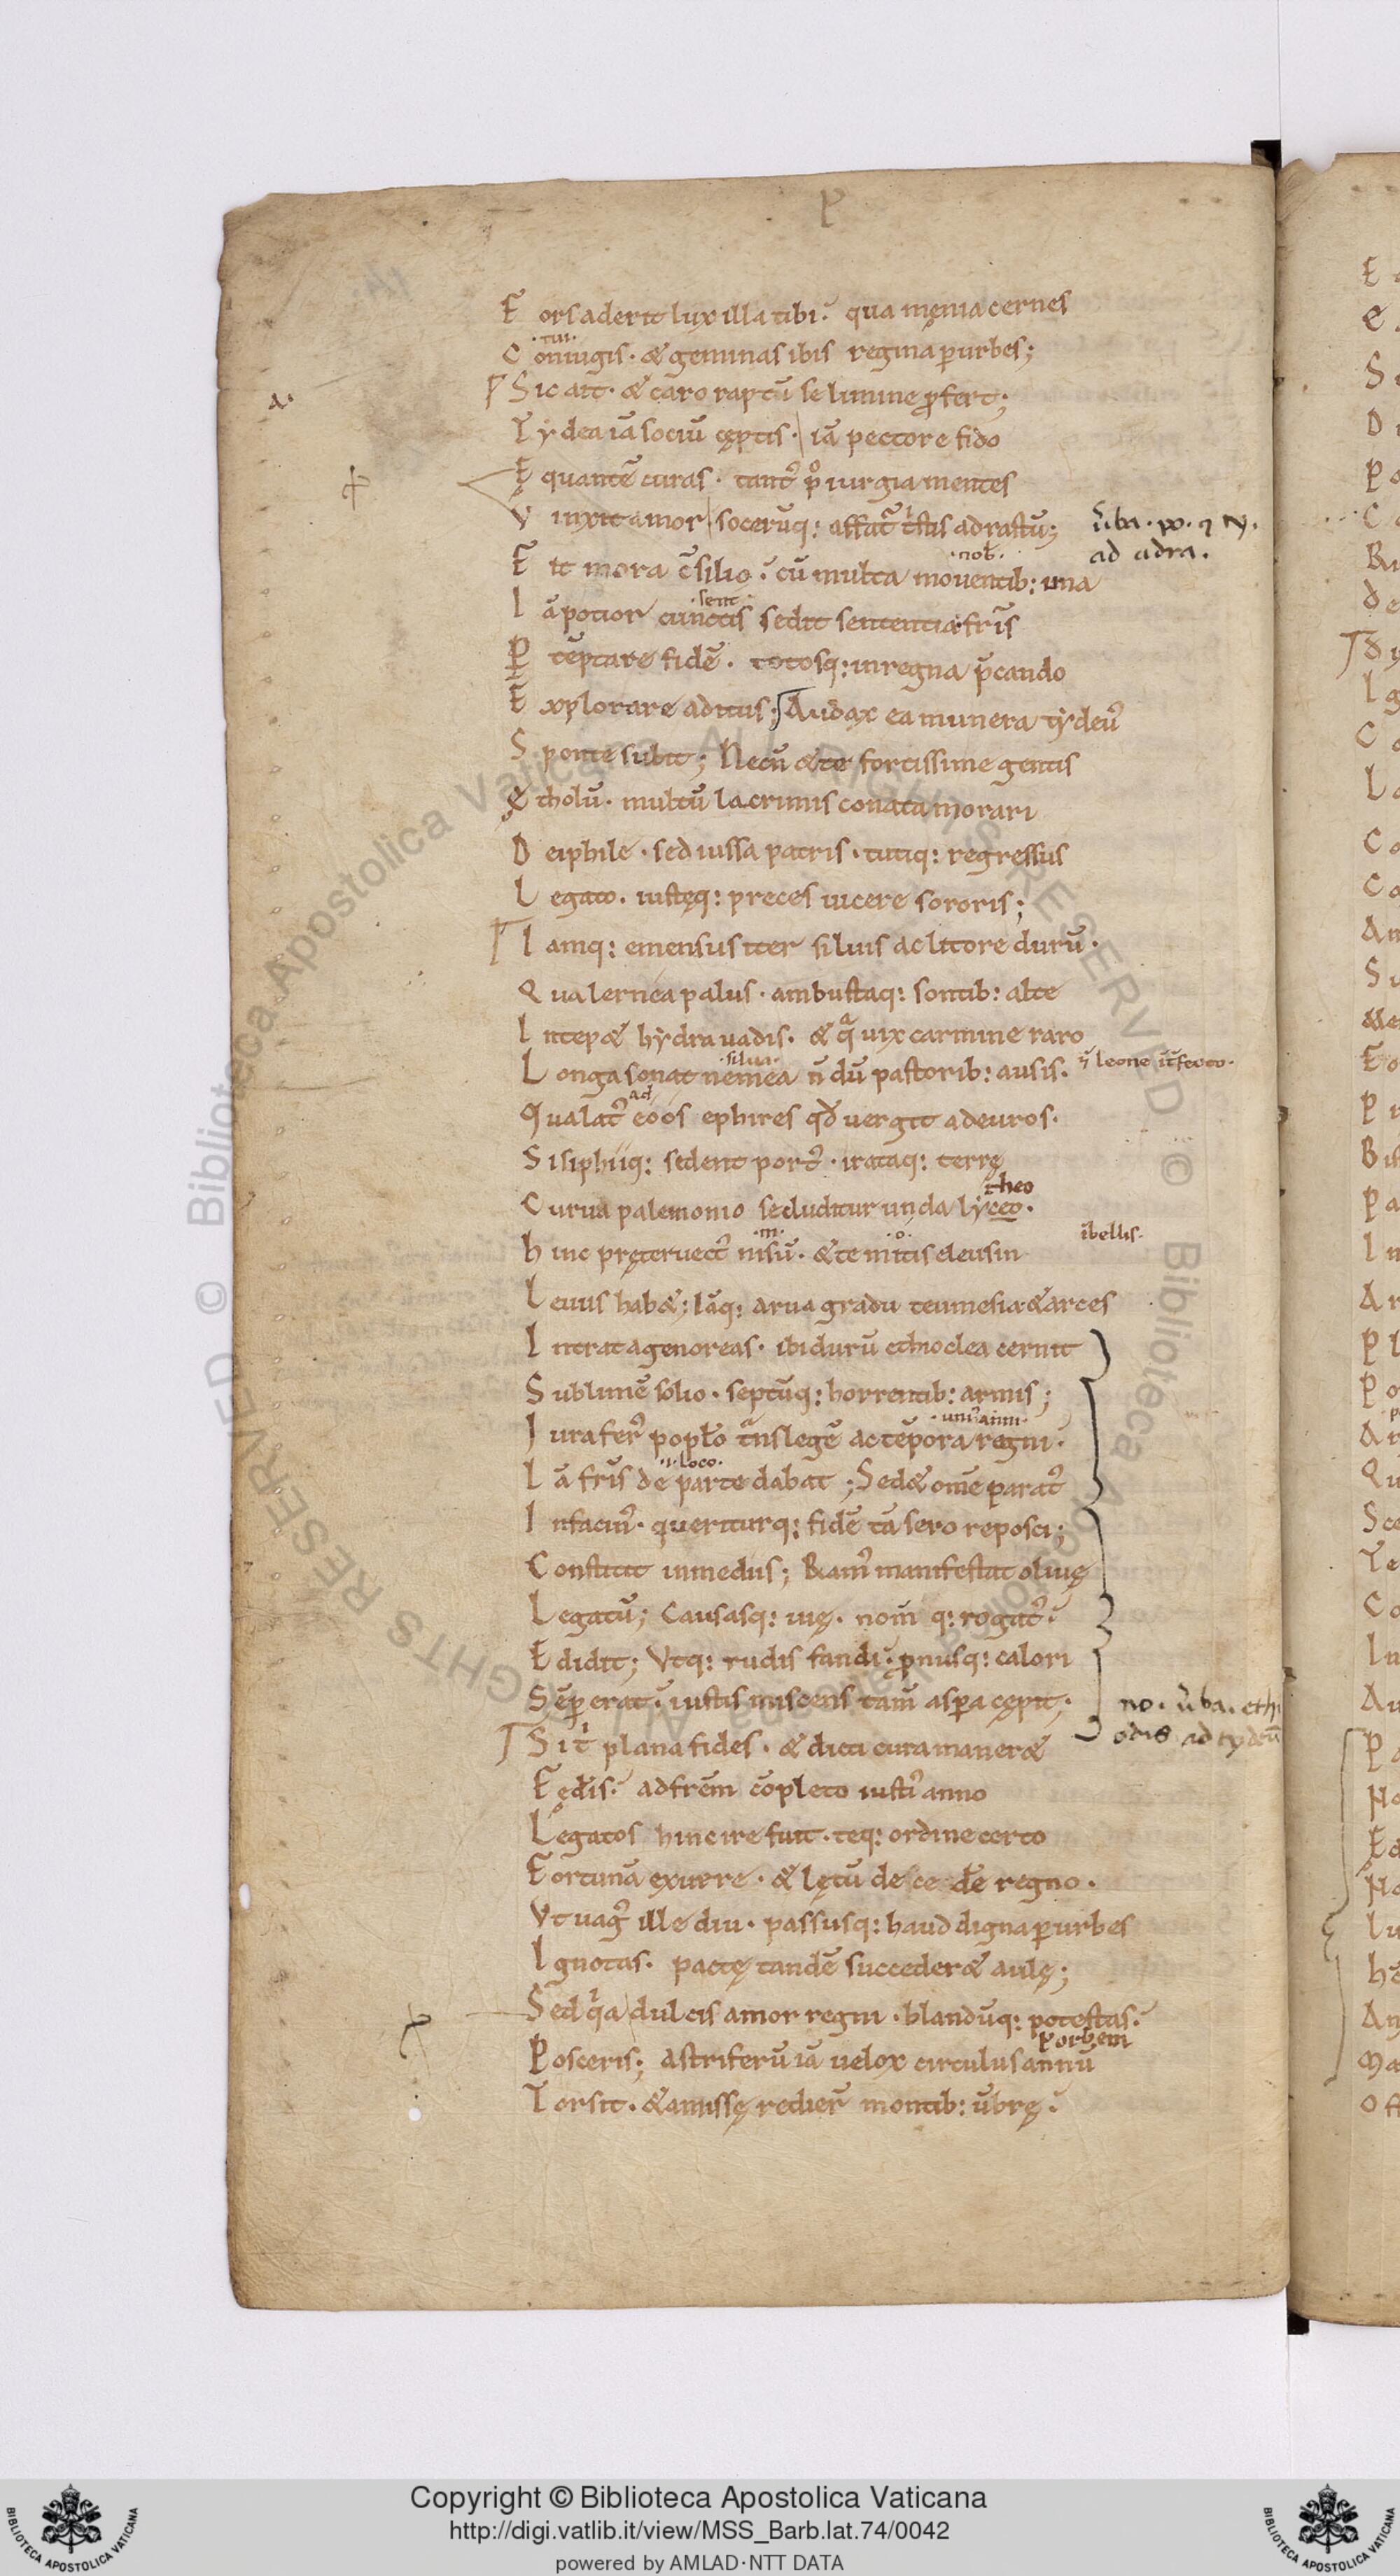 F orsaderit lux illa tibi. qua męnia cernes
.tui.
C oniugis. & geminas ibis regina ꝑ urbes;
Sic ait. & caro raptū se limine ꝓfert;
a.
T ydea iā sociū cęptis. iā pectore fido
Ę quantē curas. tant᷒ p᷒ iurgia mentes
V inxit amor socerūq: affat᷒ t᷑stis adrastū;
u᷑ba. po. ⁊ ty.
ad adra.
.nob̄.
F it mora c̄silio. cū multa mouentib: una
.sent.
I ā potior cunctis sedit sententia fr̄is
P tēptare fidē. totosq: in regna p̄cando
E xplorare aditus; Audax ea munera tydeu᷒
S ponte subit; Necn̄ & te fortissime gentis
Ę tholū. multū lacrimis conata morari
D eiphile. sed iussa patris. tutiq: regressus
L egato. iustęq: preces uicere sororis;
I amq: emensus iter siluis ac litore durū.
Q ua lernea palus. ambustaq: sontib: alte
I ntep& hydra uadis. & qᵃ uix carmine raro
.silua.
L onga sonat nemea n̄ dū pastorib: ausis.
leone
ad
Q ua lat᷒ eoos ephires qđ uergit ad euros.
S isiphiiq: sedent port᷒. irataq: terrę
theo
C urua palemonio secluditur unda lyceo.
.m. .o.
h inc pręteruect᷒ nisū. & te mitis eleusin
ībellis.
L euus hab&; Iāq: arua gradu teumesia & arces
I ntrat agenoreas. ibi durū ethioclea cernit
S ublimē solio. septūq: horrentib: armis;
I ura fer᷒ popl̄o t᷑ns legē ac tēpora regni.
.i. loco.
I ā fr̄is de parte dabat; Sed & om̄e parat᷒
I n facin᷒. queriturq: fidē tā sero reposci;
C onstitit in mediis; Ram᷒ manifestat oliuę
L egatū; Causasq: uię. nom̄ q: rogat᷒.
E didit; Vtq: rudis fandi. ꝓnusq: calori
S ēꝑ erat. iustis miscens tam̄ asꝑa cępit;
no. u᷑ba. ethi
odis ad tydeū
Si t̄ plana fides. & dicti cura maner&
F ęd᷑is. ad frēm cōpleto iusti᷒ anno
L egatos hinc ire fuit. teq: ordine certo
F ortunā exuere. & lętū decedere regno.
Vt uag᷒ ille diu. passusq: haud digna ꝑ urbes
I gnotas. pactę tandē succeder& aulę;
Sed qⁱa dulcis amor regni. blandūq: potestas.
ꝑ orbem
P osceris; astriferū iā uelox circulus annū
T orsit. & amissę redier᷑ montib: ūbrę.
Copyright © Biblioteca Apostolica Vaticana
http://digi.vatlib.it/view/MSS_Barb.lat.74/0042
powered by AMLAD·NTT DATA